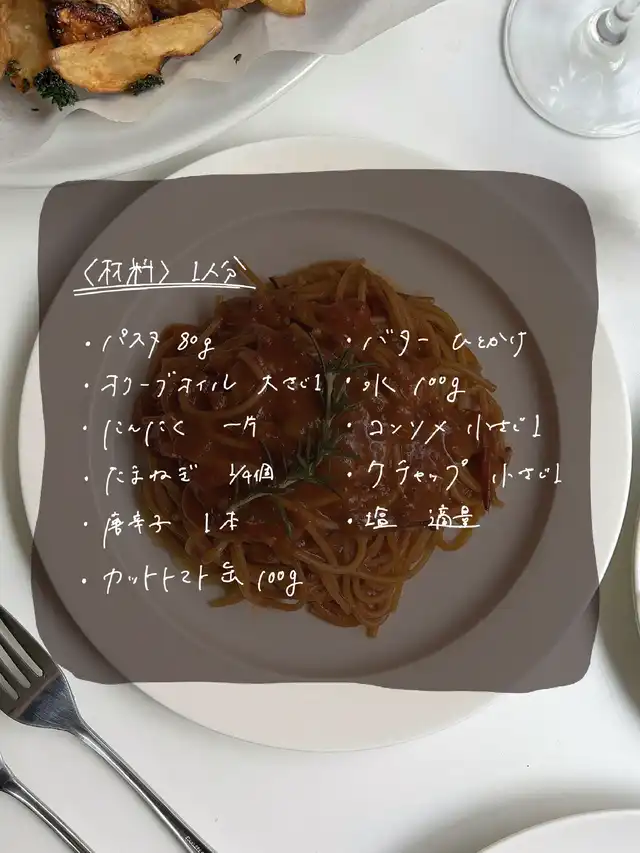 〈材料〉 1人分
・パスタ 80g
・オリーブオイル 大さじ1
・にんにく 一片
・たまねぎ 1/4個
・唐辛子 1本
・カットトマト缶 100g
・バター ひとかけ
・水 100g
・コンソメ 小さじ1
・ケチャップ 小さじ1
・塩 適量